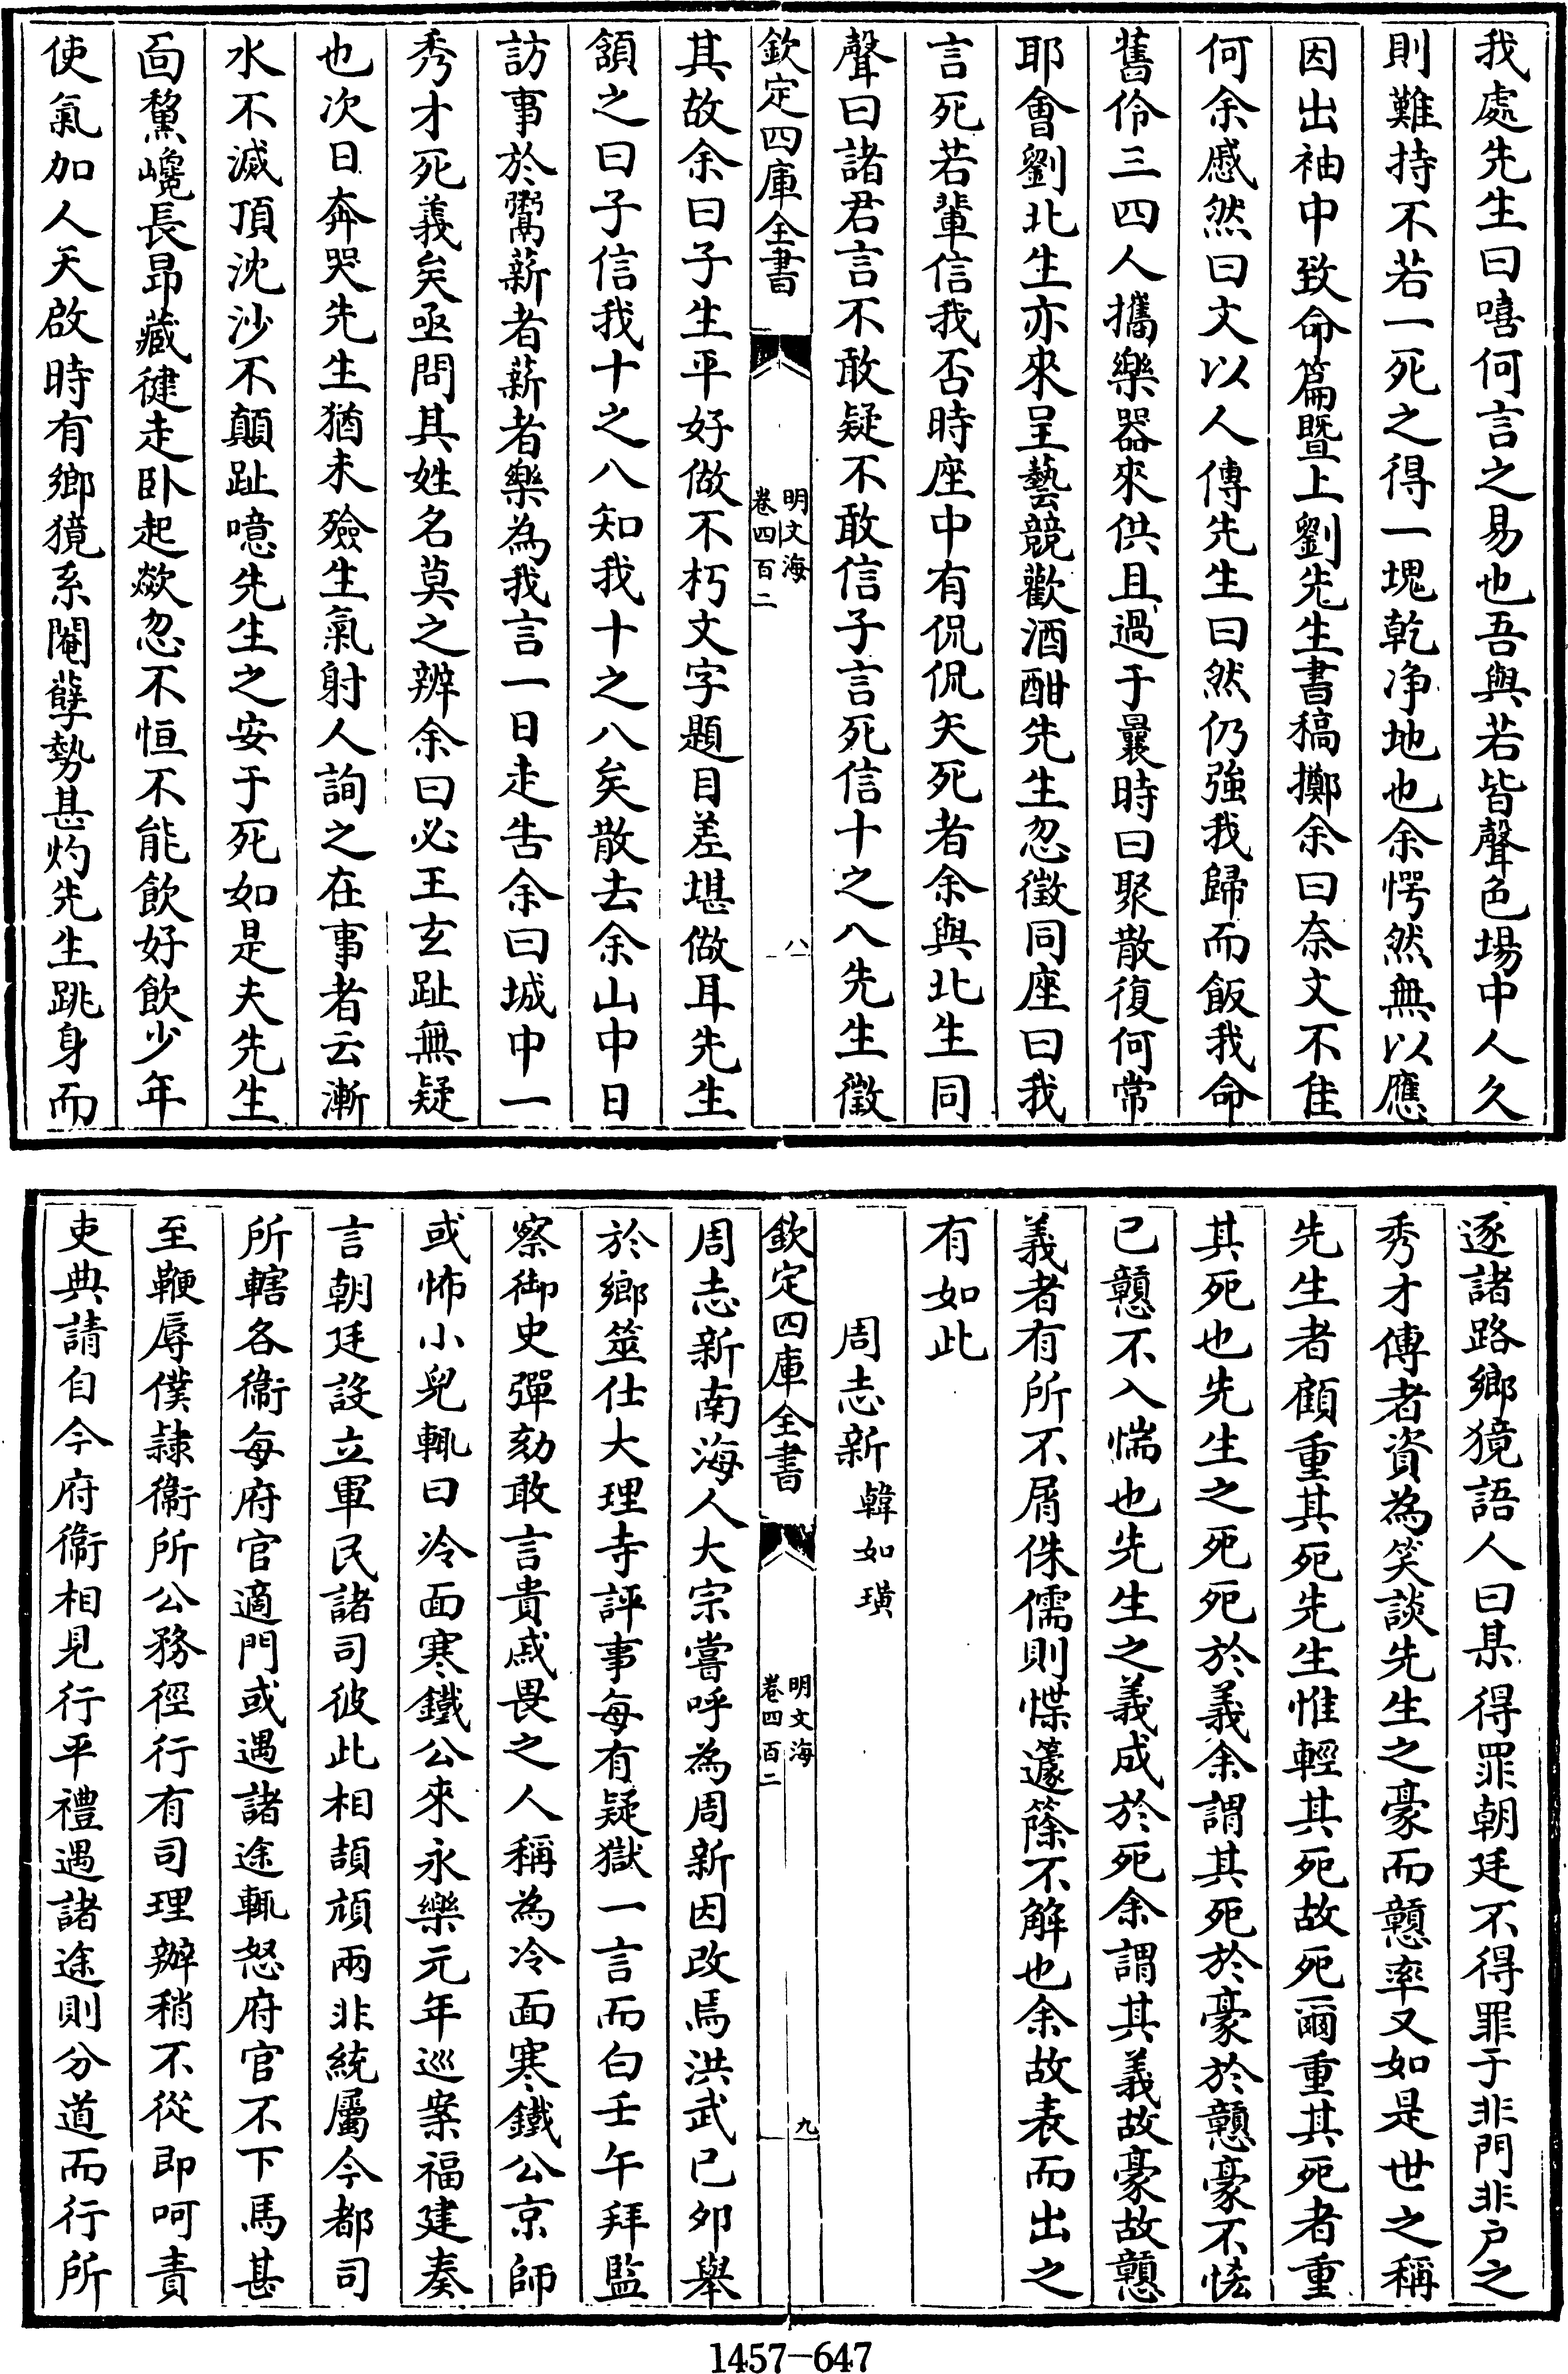 我處先生曰嘻何言之易也吾與若皆聲色場中人久
則難持不若一死之得一塊乾净地也余愕然無以應
因出袖中致命篇暨上劉先生書稿擲余曰奈文不佳
何余慼然曰文以人傳先生曰然仍強我歸而飯我命
舊伶三四人攜樂器來供且過于曩時曰聚散復何常
耶會劉北生亦來呈藝競歡酒酣先生忽徵同座曰我
言死若輩信我否時座中有侃侃矢死者余與北生同
聲曰諸君言不敢疑不敢信子言死信十之八先生徵
欽定四庫全書
明文海
卷四百二
八
其故余曰子生平好做不朽文字題目差堪做耳先生
頷之曰子信我十之八知我十之八矣散去余山中日
訪事於鬻薪者薪者樂為我言一日走告余曰城中一
秀才死義矣亟問其姓名莫之辨余曰必王玄趾無疑
也次日奔哭先生猶未殮生氣射人詢之在事者云漸
水不滅頂沈沙不顛趾噫先生之安于死如是夫先生
面黧巉長昂藏徤走卧起歘忽不恒不能飲好飲少年
使氣加人天啟時有鄉獍系閹孽勢甚灼先生跳身而
逐諸路鄉獍語人曰某得罪朝廷不得罪于非門非户之
秀才傳者資為笑談先生之豪而戇率又如是世之稱
先生者顧重其死先生惟輕其死故死爾重其死者重
其死也先生之死死於義余謂其死於豪於戇豪不恡
已戇不入惴也先生之義成於死余謂其義故豪故戇
義者有所不屑侏儒則慄籧篨不解也余故表而出之
有如此
周志新 韓如璜
欽定四庫全書
明文海
卷四百二
九
周志新南海人大宗嘗呼為周新因改焉洪武已夘舉
於鄉筮仕大理寺評事每有疑獄一言而白壬午拜監
察御史彈劾敢言貴戚畏之人稱為冷面寒鐵公京師
或怖小兒輒曰冷面寒鐵公來永樂元年巡案福建奏
言朝廷設立軍民諸司彼此相頡頏兩非統屬今都司
所轄各衞每府官適門或遇諸途輒怒府官不下馬甚
至鞭辱僕隷衞所公務徑行有司理辦稍不從即呵責
吏典請自今府衞相見行平禮遇諸途則分道而行所
1457—647